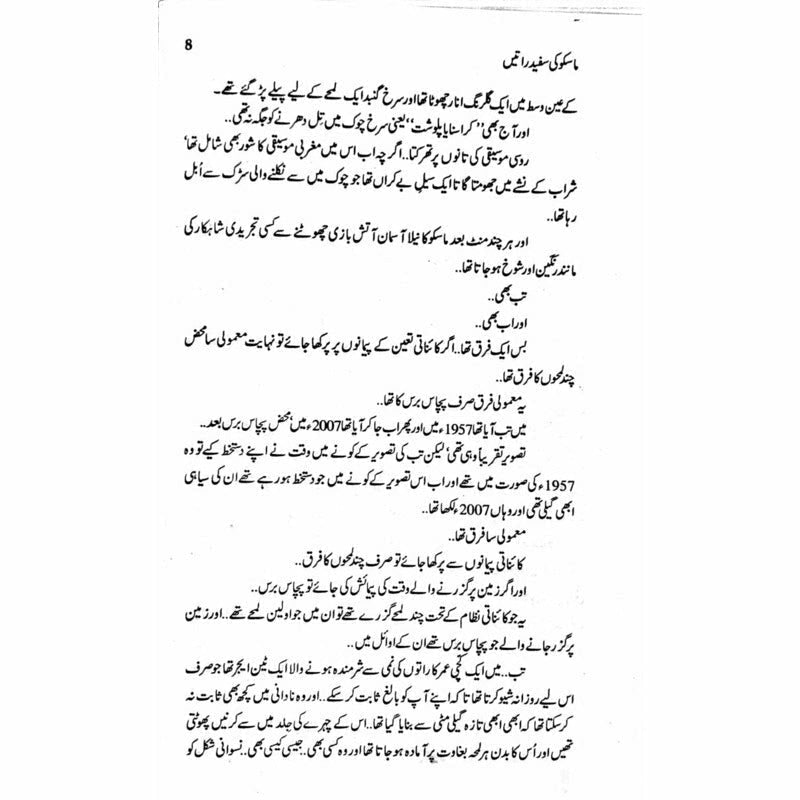 ماسکو کی سفید راتیں
8
کے عین وسط میں ایک گلرنگ انار چھوٹا تھا اور سرخ گنبد ایک لمحے کے لیے پیلے پڑ گئے تھے۔
اور آج بھی ’’کراسنایا پلوشت‘‘ یعنی سرخ چوک میں تِل دھرنے کو جگہ نہ تھی..
روسی موسیقی کی تانوں پر تھرکتا.. اگرچہ اب اس میں مغربی موسیقی کا شور بھی شامل تھا‘
شراب کے نشے میں جھومتا گاتا ایک سیلِ بے کراں تھا جو چوک میں سے نکلنے والی سڑک سے اُبل
رہا تھا..
اور ہر چند منٹ بعد ماسکو کا نیلا آسمان آتش بازی چھوٹنے سے کسی تجریدی شاہکار کی
مانند رنگین اور شوخ ہو جاتا تھا..
تب بھی..
اور اب بھی..
بس ایک فرق تھا.. اگر کائناتی تعین کے پیمانوں پر پرکھا جائے تو نہایت معمولی سا محض
چند لمحوں کا فرق تھا..
یہ معمولی فرق صرف پچاس برس کا تھا..
میں تب آیا تھا 1957ء میں اور پھر اب جا کر آیا تھا 2007ء میں‘ محض پچاس برس بعد..
تصویر تقریباً وہی تھی‘ لیکن تب کی تصویر کے کونے میں وقت نے اپنے دستخط کیے تو وہ
1957ء کی صورت میں تھے اور اب اس تصویر کے کونے میں جو دستخط ہو رہے تھے ان کی سیاہی
ابھی گیلی تھی اور وہاں 2007ء لکھا تھا..
معمولی سا فرق تھا..
کائناتی پیمانوں سے پرکھا جائے تو صرف چند لمحوں کا فرق..
اور اگر زمین پر گزرنے والے وقت کی پیمائش کی جائے تو پچاس برس..
یہ جو کائناتی نظام کے تحت چند لمحے گزرے تھے تو ان میں جو اولین لمحے تھے.. اور زمین
پر گزر جانے والے جو پچاس برس تھے ان کے اوائل میں..
تب.. میں ایک کچی عمر کا راتوں کی نمی سے شرمندہ ہونے والا ایک ٹین ایجر تھا جو صرف
اس لیے روزانہ شیو کرتا تھا تاکہ اپنے آپ کو بالغ ثابت کر سکے.. اور وہ نادانی میں کچھ بھی ثابت نہ
کر سکتا تھا کہ ابھی ابھی تازہ گیلی مٹی سے بنایا گیا تھا.. اس کے چہرے کی جِلد میں سے کرنیں پھوٹتی
تھیں اور اُس کا بدن ہر لمحہ بغاوت پر آمادہ ہو جاتا تھا اور وہ کسی بھی.. جیسی کیسی بھی.. نسوانی شکل کو